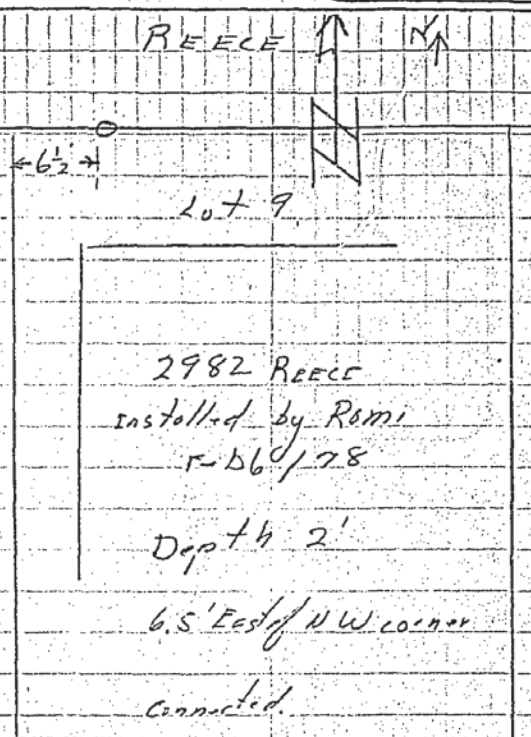 REECE N
6½
Lot 9
2982 REECE
Installed by Romi
/78
Depth 2'
6.5' East of NW corner
Connected.